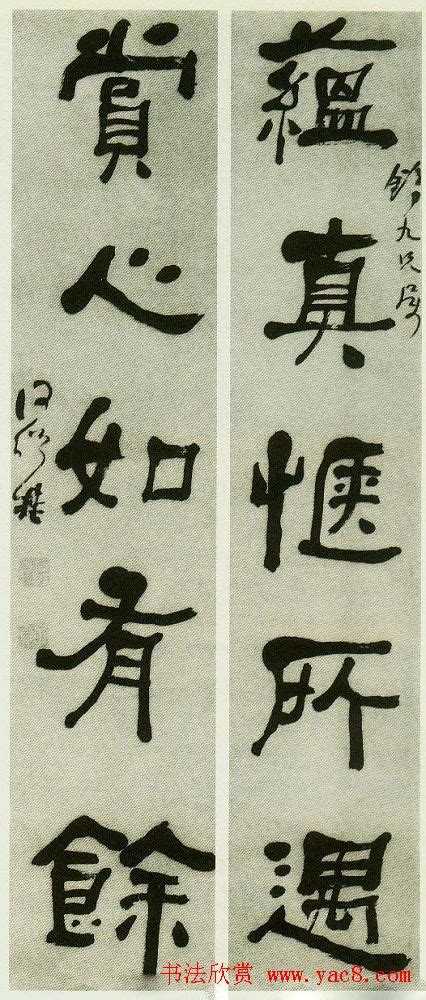 蘊真愜所遇
九兄屬
賞心如有餘
何紹基
书法欣赏 www.yac8.com